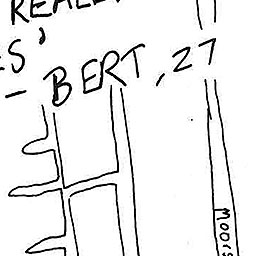 REALL
ES'
- BERT, 27
MOORS